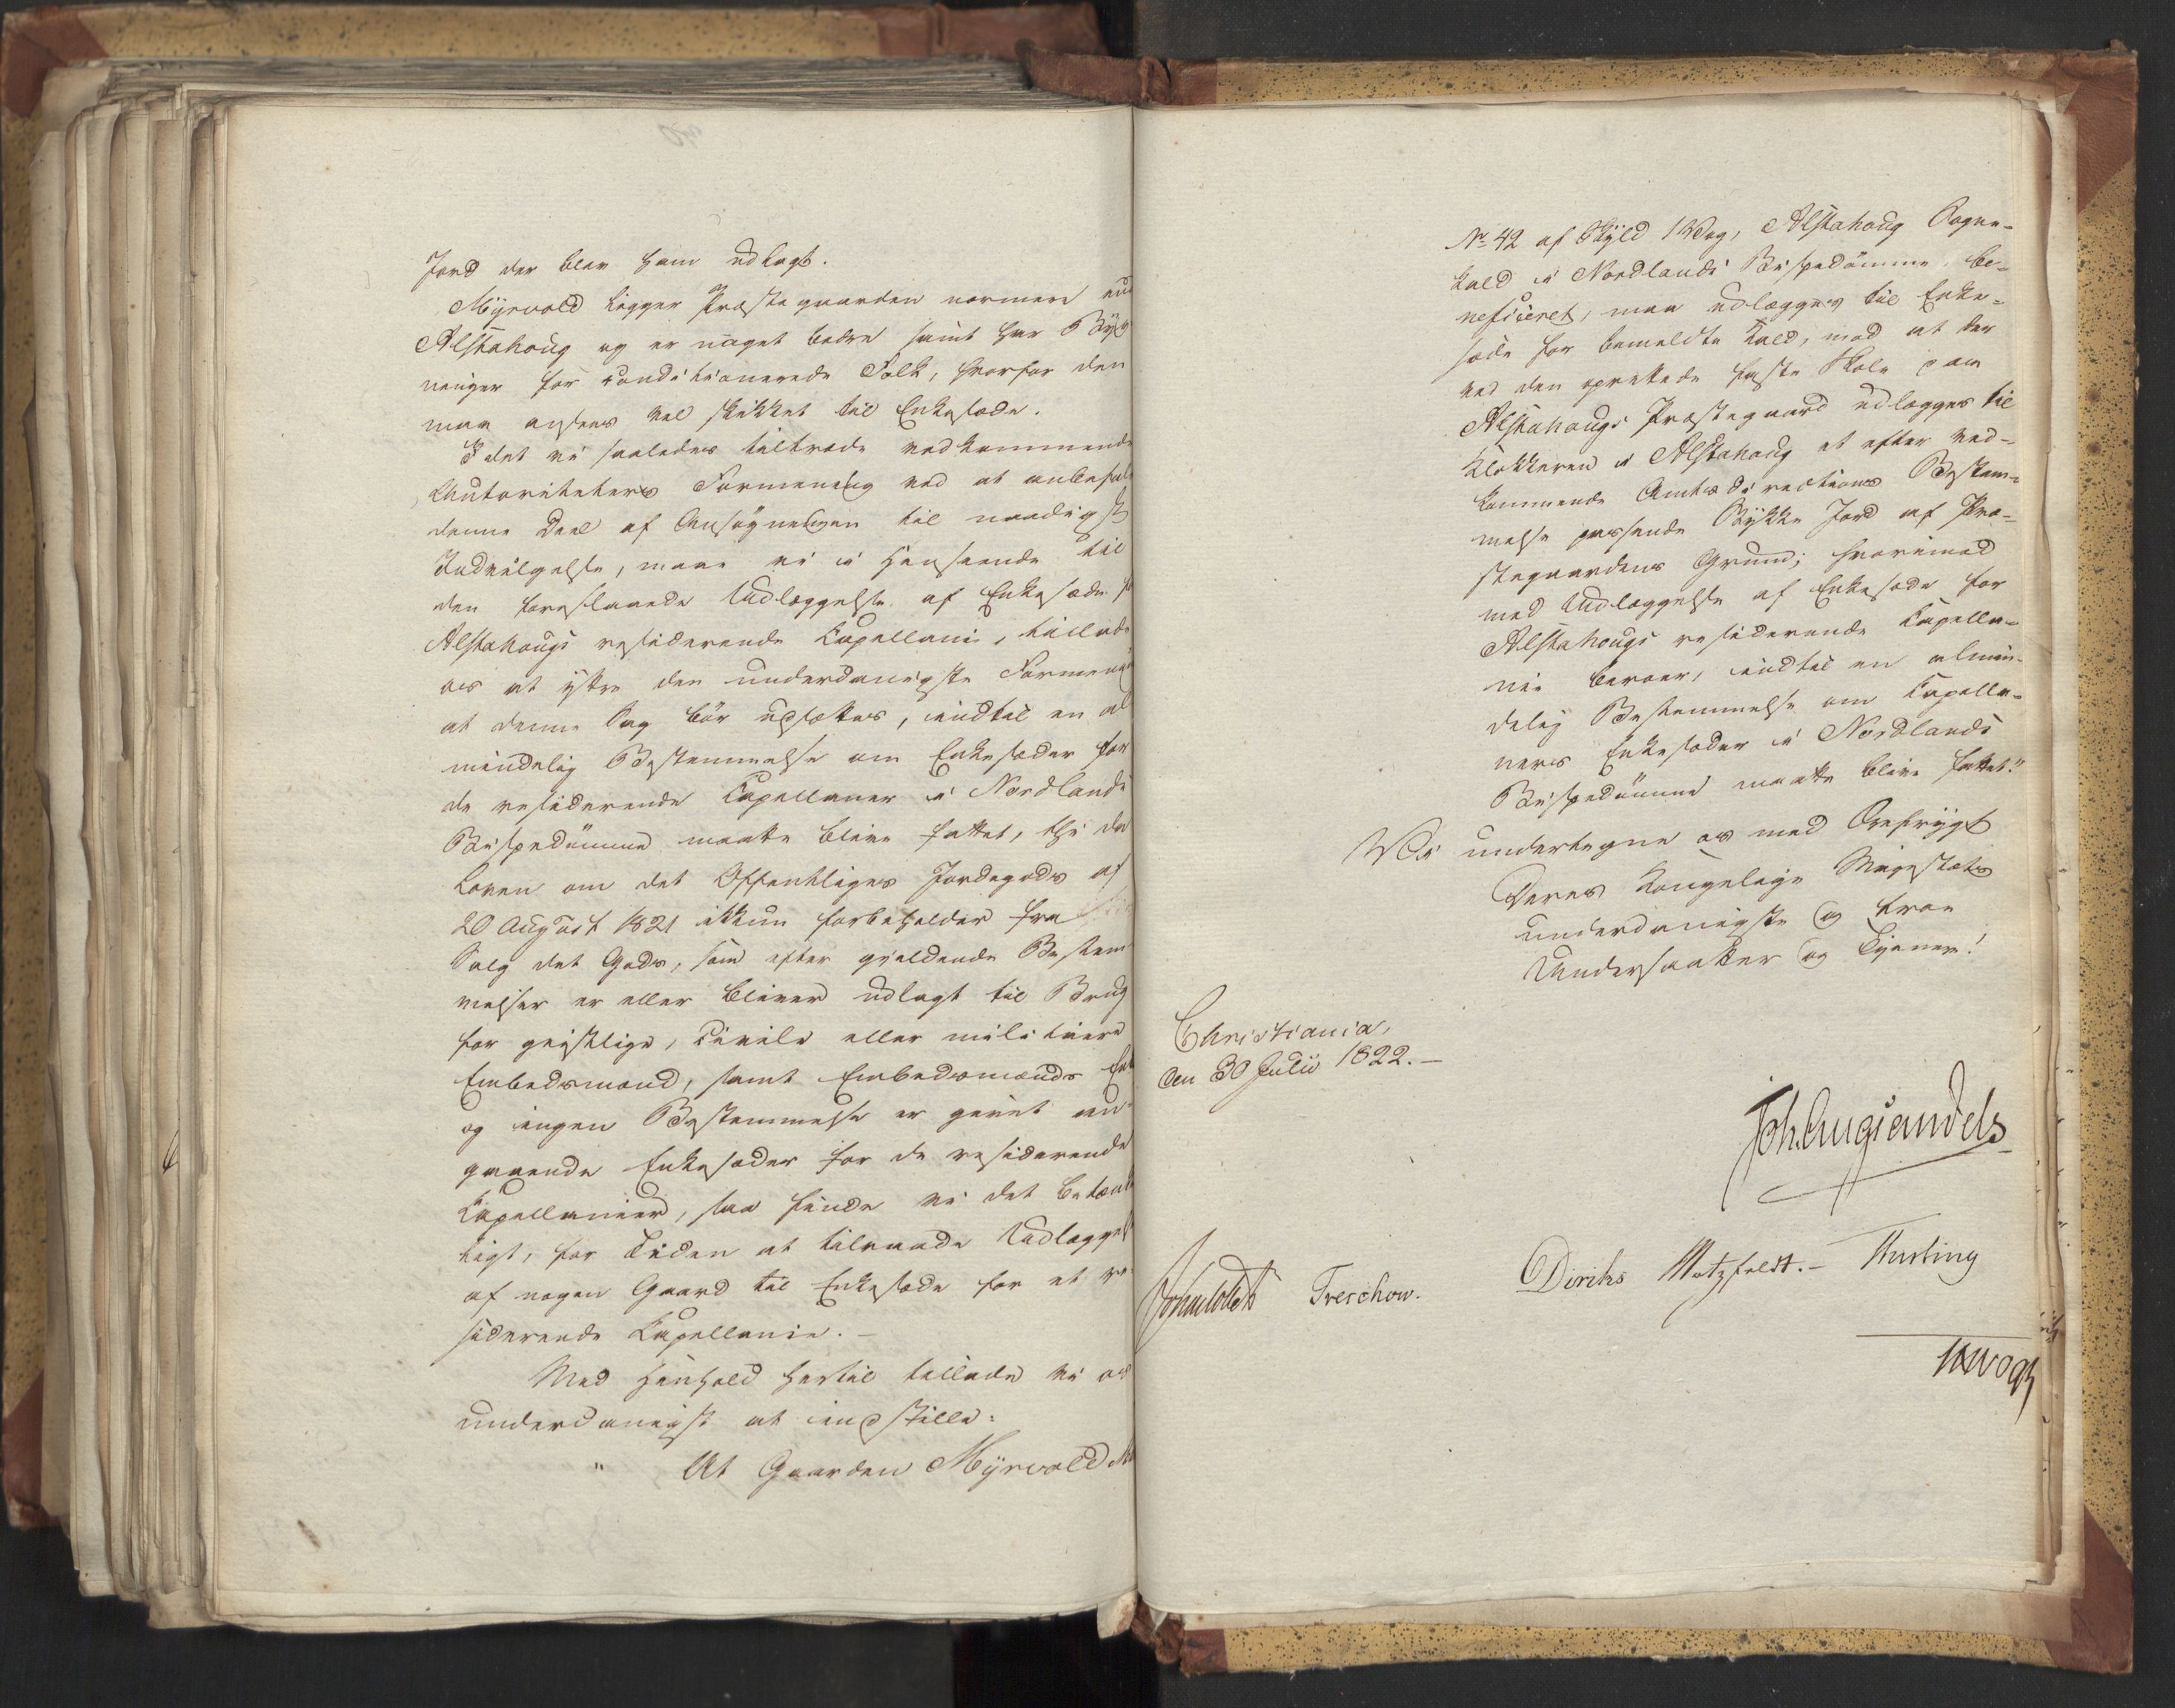 Jord der blev ham udlagt.
Myrvold ligger Præstegaarden nærmere end
Alstahoug og er noget bedre samt har Byg
ninger for conditionerede Folk, hvorfor den
maa ansees vel skikket til Enkesæde.
I det vi saaledes tiltræde vedkommende
Autoriteters Formening ved at anbefale
denne Deel af Ansøgningen til naadigst
Indvilgelse, maae vi i Henseende til
den foreslaaede Udlæggelse af Enkesæde f
Alstahougs residerende Capellani, tillade
os at yttre den underdanigste Formening
at denne Sag bør udsættes, indtil en al
mindelig Bestemmelse om Enkesæder for
de residerende Capellaner i Nordlands
Bispedømme maatte blive fattet, thi da
Loven om det Offentliges Jordegods af
20 August 1821 ikkun forbeholder fra
Salg det Gods, som efter gjældende Bestem
melser er eller bliver udlagt til Brug
for geistlige, civile eller militaire
Embedsmænd, samt Embedsmænds Enk
og ingen Bestemmelse er givet an-
gaaende Enkesæder for de residerende
Capellanier, saa finde vi det betænke
ligt, for Tiden at tilraade Udlæggels
af nogen Gaard til Enkesæde for et re
siderende Capellanie. –
Med Henhold hertil tillade vi os
underdanigst at indstille:
" At Gaarden Myrvold M
No 42 af Skyld 1 Vog, Alstahoug Sogne-
kald i Nordlands Bispedømme be-
neficeret, maa udlægges til Enke-
sæde for bemeldte Kald, mod at der
ved den oprettede faste Skole paa
Alstahougs Præstegaard udlægges til
Klokkeren i Alstahoug et efter ved-
kommende Amtsdirections Bestem-
melse passende Stykke Jord af Præ-
stegaardens Grund; hvorimod
med Udlæggelse af Enkesæde for
Alstahougs residerende Capella-
nie beroer, indtil en almin-
delig Bestemmelse om Capella-
ners Enkesæder i Nordlands
Bispedømme maatte blive fattet."
Vi undertegne os med Ærefrygt
Deres Kongelige Majestæts
underdanigste og troe
Undersaatter og Tjenere!
Christiania,
den 30 Julii 1822. –
Joh. Aug. Sandels
Sommerhielm Treschow. Diriks Motzfeldt. – Krebs